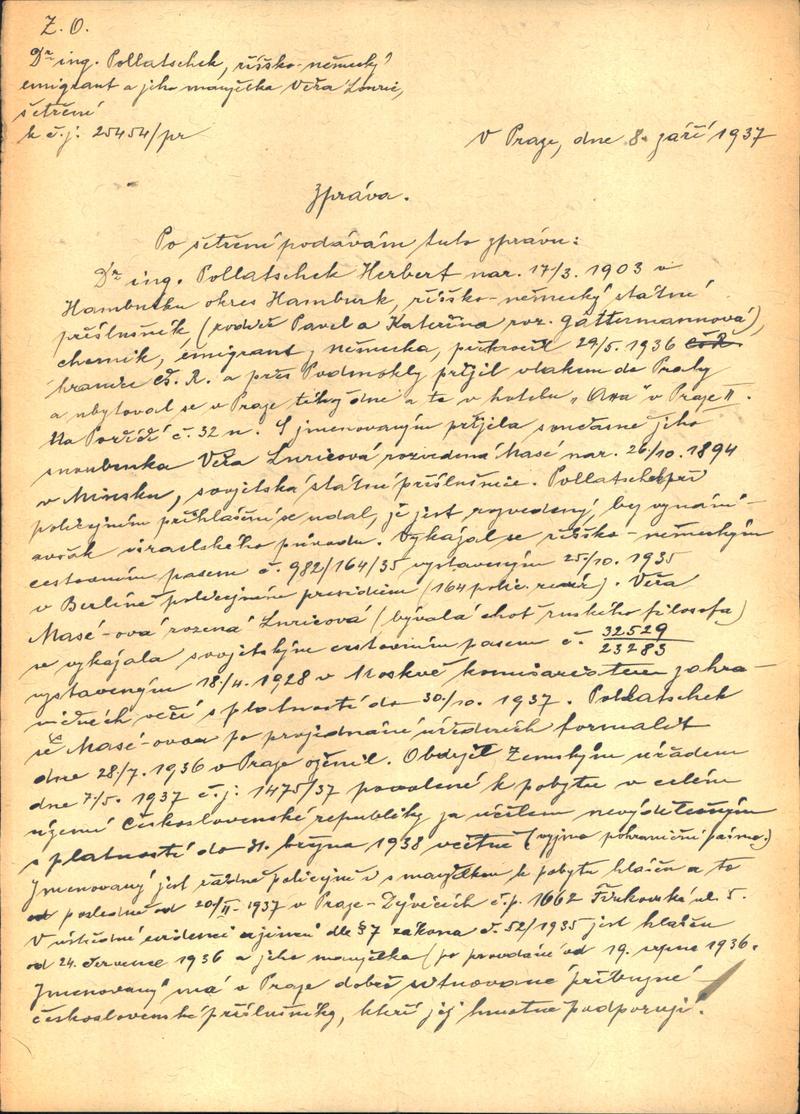 Z. O.
Dr ing. Pollatschek, říšsko-německý
emigrant a jeho manželka Věra Lourié,
šetření
k č.j. 25454/pr
V Praze, dne 8. září 1937
Zpráva.
Po šetření podávám tuto zprávu:
Dr ing. Pollatschek Herbert nar. 17/3. 1903 v
Hamburku okres Hamburk, říšsko-německý státní
příslušník (rodiče Pavel a Kateřina roz. Gattermannová),
chemik, emigrant, německa, překročil 29/5. 1936 čsR.
hranice Čs. R. a přes Podmokly přijel vlakem do Prahy
a ubytoval se v Praze téhož dne a to v hotelu „Axa" v Praze II.
Na Poříčí č. 32 n. S jmenovaným přijela současně jeho
snoubenka Věra Luricová rozvedená Masé nar. 26/10. 1894
v Minsku, sovjetská státní příslušnice. Pollatschek při
policejním přihlášení se udal, že jest rozvedený, bez vyznání
avšak israelského původu. Vykázal se říšsko-německým
cestovním pasem č. 982/164/35 vystaveným 25/10. 1935
v Berlíně policejním presidiem (164 polic. revír). Věra
Masé-ová rozená Luricová (bývalá choť ruského filosofa)
se vykázala sovjetským cestovním pasem č. 32529/23283
vystaveným 18./4. 1928 v Moskvě komisariátem zahra-
ničních věcí s platností do 30./10. 1937. Pollatschek
se Masé-ovou po projednání úředních formalit
dne 28/7. 1936 v Praze oženil. Obdržel Zemským úřadem
dne 7/5. 1937 č.j. 1475/37 povolení k pobytu v celém
území Československé republiky za účelem nevýdělečným
s platností do 31. března 1938 včetně (vyjma pohraniční pásmo.)
Jmenovaný jest řádně policejně i s manželkou k pobytu hlášen a to
od posledně od 20/II-1937 v Praze-Dejvicích č.p. 1662 ul. 5.
V ústřední evidenci cizinců dle § 7 zákona č. 52/1935 jest hlášen
od 24. července 1936 a jeho manželka (po provdání od 19. srpna 1936.
Jmenovaný má v Praze dobře situované příbuzné
československé příslušníky, kteří jej hmotně podporují.